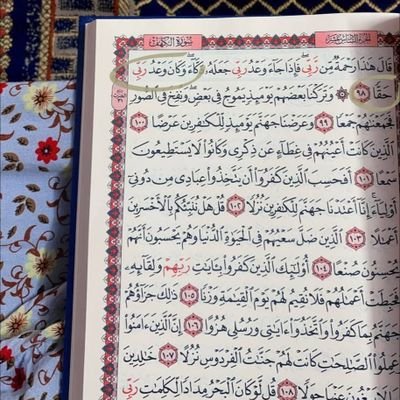 سُورَةُ الكَهْفِ
قَالَ هَٰذَا رَحْمَةٌ مِّن رَّبِّي ۖ فَإِذَا جَاءَ وَعْدُ رَبِّي جَعَلَهُ دَكَّاءَ ۖ وَكَانَ وَعْدُ رَبِّي
حَقًّا ٩٨ ۞ وَتَرَكْنَا بَعْضَهُمْ يَوْمَئِذٍ يَمُوجُ فِي بَعْضٍ ۖ وَنُفِخَ فِي الصُّورِ
فَجَمَعْنَاهُمْ جَمْعًا ٩٩ وَعَرَضْنَا جَهَنَّمَ يَوْمَئِذٍ لِّلْكَافِرِينَ عَرْضًا ١٠٠
الَّذِينَ كَانَتْ أَعْيُنُهُمْ فِي غِطَاءٍ عَن ذِكْرِي وَكَانُوا لَا يَسْتَطِيعُونَ
سَمْعًا ١٠١ أَفَحَسِبَ الَّذِينَ كَفَرُوا أَن يَتَّخِذُوا عِبَادِي مِن دُونِي
أَوْلِيَاءَ ۚ إِنَّا أَعْتَدْنَا جَهَنَّمَ لِلْكَافِرِينَ نُزُلًا ١٠٢ قُلْ هَلْ نُنَبِّئُكُم بِالْأَخْسَرِينَ
أَعْمَالًا ١٠٣ الَّذِينَ ضَلَّ سَعْيُهُمْ فِي الْحَيَاةِ الدُّنْيَا وَهُمْ يَحْسَبُونَ أَنَّهُمْ
يُحْسِنُونَ صُنْعًا ١٠٤ أُولَٰئِكَ الَّذِينَ كَفَرُوا بِآيَاتِ رَبِّهِمْ وَلِقَائِهِ
فَحَبِطَتْ أَعْمَالُهُمْ فَلَا نُقِيمُ لَهُمْ يَوْمَ الْقِيَامَةِ وَزْنًا ١٠٥ ذَٰلِكَ جَزَاؤُهُمْ
جَهَنَّمُ بِمَا كَفَرُوا وَاتَّخَذُوا آيَاتِي وَرُسُلِي هُزُوًا ١٠٦ إِنَّ الَّذِينَ آمَنُوا
وَعَمِلُوا الصَّالِحَاتِ كَانَتْ لَهُمْ جَنَّاتُ الْفِرْدَوْسِ نُزُلًا ١٠٧ خَالِدِينَ
فِيهَا لَا يَبْغُونَ عَنْهَا حِوَلًا ١٠٨ قُل لَّوْ كَانَ الْبَحْرُ مِدَادًا لِّكَلِمَاتِ رَبِّي